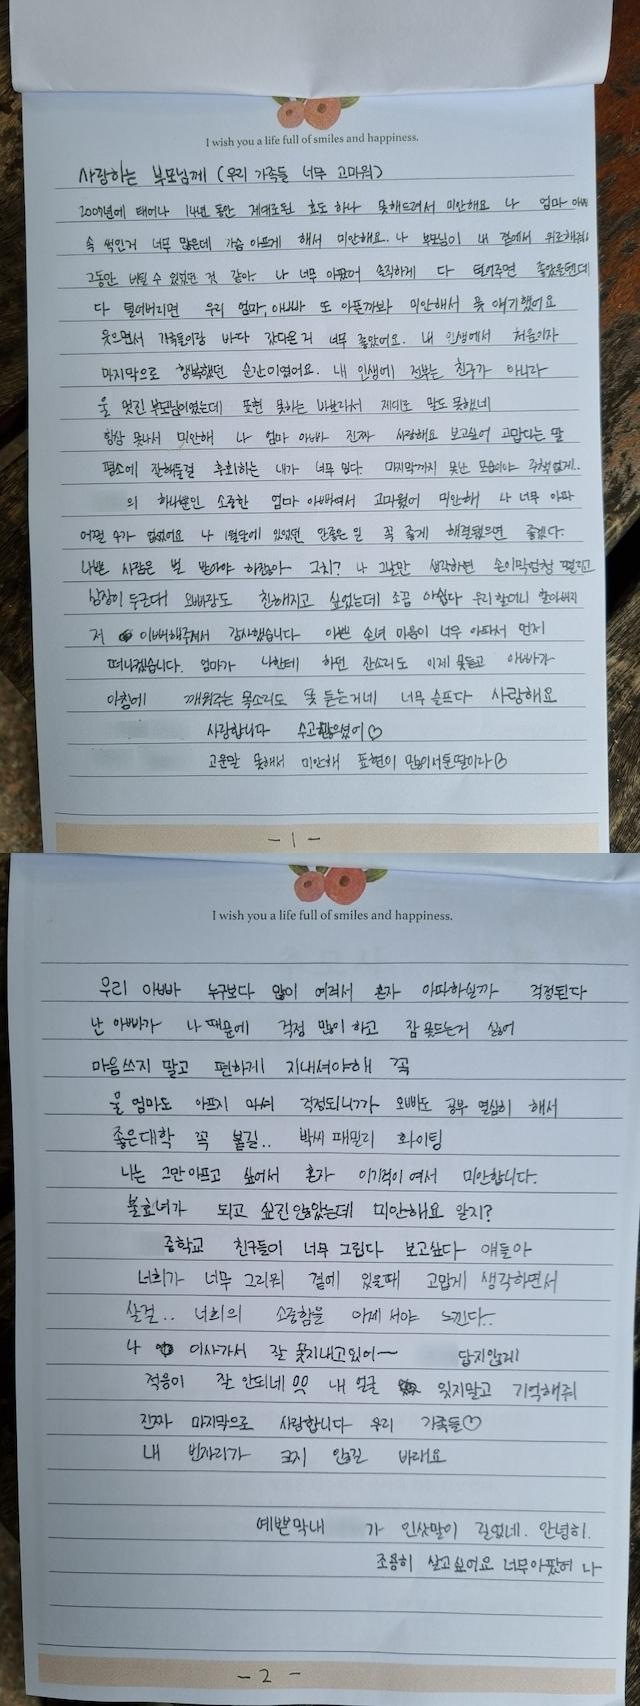 I wish you a life full of smiles and happiness.
사랑하는 부모님께 (우리 가족들 너무 고마워)
2007년에 태어나 14년 동안 제대로된 효도 하나 못해드려서 미안해요 나 엄마 아빠
속 썩인거 너무 많은데 가슴 아프게 해서 미안해요.. 나 부모님이 내 곁에서 위로해줘서
그동안 버틸 수 있었던 것 같아. 나 너무 아팠어 솔직하게 다 털어주면 좋았을텐데
다 털어버리면 우리 엄마, 아빠가 또 아플까봐 미안해서 못 얘기했어요
웃으면서 가족들이랑 바다 갔다온거 너무 좋았어요. 내 인생에서 처음이자
마지막으로 행복했던 순간이였어요. 내 인생에 전부는 친구가 아니라
울 멋진 부모님이였는데 표현 못하는 바보라서 제대로 말도 못했네
항상 못나서 미안해 나 엄마 아빠 진짜 사랑해요 보고싶어 고맙다는 말
평소에 잘해둘걸 후회하는 내가 너무 밉다. 마지막까지 못난 모습이야 주책없게..
의 하나뿐인 소중한 엄마 아빠여서 고마웠어 미안해 나 너무 아파
어쩔 수가 없었어요 나 1월달에 있었던 안좋은 일 꼭 좋게 해결됐으면 좋겠다.
나쁜 사람은 벌 받아야 하잖아 그치? 나 그날만 생각하면 손이 막 엄청 떨리고
심장이 두근대 오빠랑도 친해지고 싶었는데 조금 아쉽다 우리 할머니 할아버지
저 이뻐해주셔서 감사했습니다 이쁜 손녀 마음이 너무 아파서 먼저
떠나겠습니다. 엄마가 나한테 하던 잔소리도 이제 못듣고 아빠가
아침에 깨워주는 목소리도 못 듣는거네 너무 슬프다 사랑해요
사랑합니다 수고많으셨어♡
고운말 못해서 미안해 표현이 많이서툰딸이라♡
- 1 -
I wish you a life full of smiles and happiness.
우리 아빠 누구보다 많이 여려서 혼자 아파하실까 걱정된다
난 아빠가 나 때문에 걱정 많이 하고 잠 못드는거 싫어
마음쓰지 말고 편하게 지내셔야해 꼭
울 엄마도 아프지 마셔 걱정되니까 오빠도 공부 열심히 해서
좋은대학 꼭 붙길.. 박씨 패밀리 화이팅
나는 그만 아프고 싶어서 혼자 이기적이여서 미안합니다.
불효녀가 되고 싶진 않았는데 미안해요 알지?
중학교 친구들이 너무 그립다 보고싶다 얘들아
너희가 너무 그리워 곁에 있을때 고맙게 생각하면서
살걸.. 너희의 소중함을 이제서야 느낀다..
나 이사가서 잘 못지내고있어~ 답지않게
적응이 잘 안되네 ㅇㅇ 내 얼굴 잊지말고 기억해줘
진짜 마지막으로 사랑합니다 우리 가족들♡
내 빈자리가 크지 않길 바래요
예쁜막내 가 인삿말이 길었네. 안녕히.
조용히 살고싶어요 너무아팠어 나
- 2 -